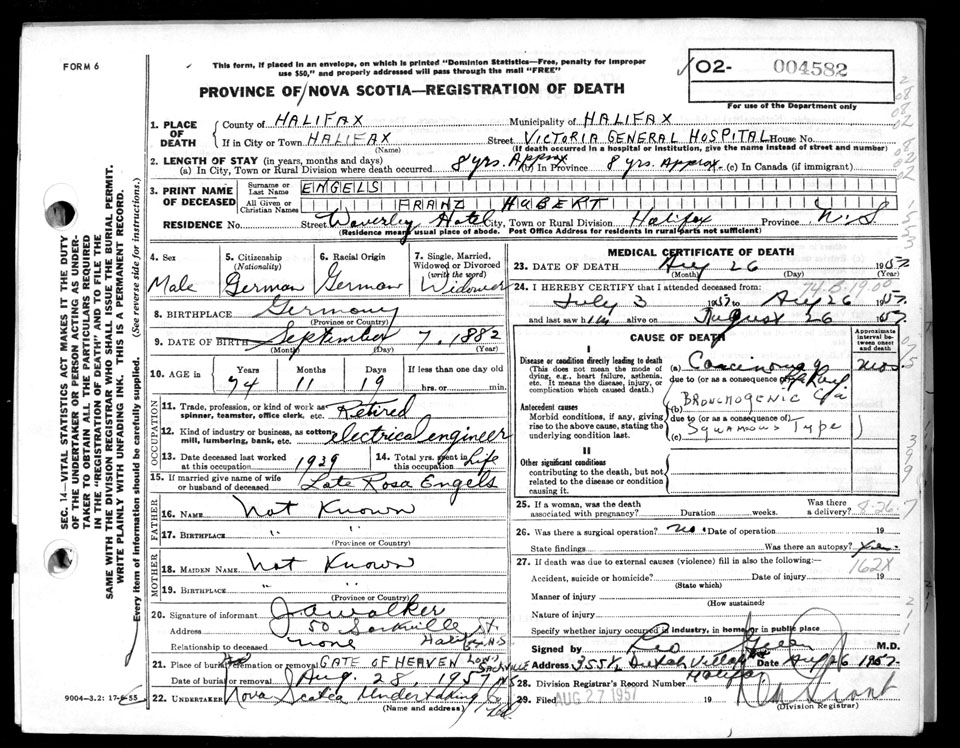 FORM 6
This form, if placed in an envelope, on which is printed "Dominion Statistics—Free, penalty for improper
use $50," and properly addressed will pass through the mail "FREE"
PROVINCE OF NOVA SCOTIA—REGISTRATION OF DEATH
02- 004582
For use of the Department only
1. PLACE OF DEATH
County of HALIFAX Municipality of HALIFAX
If in City or Town HALIFAX Street VICTORIA GENERAL HOSPITAL House No.
(Name) (If death occurred in a hospital or institution, give the name instead of street and number)
2. LENGTH OF STAY (in years, months and days)
(a) In City, Town or Rural Division where death occurred 8 yrs. Approx (b) In Province 8 yrs. Approx. (c) In Canada (if immigrant)
3. PRINT NAME OF DECEASED
Surname or Last Name ENGELS
All Given or Christian Names FRANZ HUBERT
RESIDENCE No. Street Waverley Hotel City, Town or Rural Division Halifax Province N.S
(Residence means usual place of abode. Post Office Address for residents in rural parts not sufficient)
4. Sex
Male
5. Citizenship
(Nationality)
German
6. Racial Origin
German
7. Single, Married, Widowed or Divorced
(write the word)
Widower
8. BIRTHPLACE Germany
(Province or Country)
9. DATE OF BIRTH September 7, 1882
(Month) (Day) (Year)
10. AGE in Years Months Days If less than one day old
74 11 19 hrs. or min.
OCCUPATION
11. Trade, profession, or kind of work as
spinner, teamster, office clerk, etc. Retired
12. Kind of industry or business, as cotton-
mill, lumbering, bank, etc. electrical engineer
13. Date deceased last worked
at this occupation 1929
14. Total yrs. spent in
this occupation Life
15. If married give name of wife
or husband of deceased Late Rosa Engels
FATHER
16. NAME Not Known
17. BIRTHPLACE " "
(Province or Country)
MOTHER
18. MAIDEN NAME Not Known
19. BIRTHPLACE " "
(Province or Country)
20. Signature of informant J A Walker
Address 50 Sackville St.
Halifax N.S
Relationship to deceased none
21. Place of burial, cremation or removal GATE OF HEAVEN LOW. SACKVILLE
Date of burial or removal Aug. 28 1957 NS
22. UNDERTAKER Nova Scotia Undertaking Co Ltd.
(Name and address)
MEDICAL CERTIFICATE OF DEATH
23. DATE OF DEATH Aug 26 1957
(Month) (Day) (Year)
24. I HEREBY CERTIFY that I attended deceased from:
July 3 1957 to Aug 26 1957.
and last saw him alive on August 26 1957
CAUSE OF DEATH
Approximate interval between onset and death
I
Disease or condition directly leading to death
(This does not mean the mode of dying, e.g., heart failure, asthenia, etc. It means the disease, injury, or complication which caused death.)
(a) Carcinoma of mos.
due to (or as a consequence of)
Antecedent causes
Morbid conditions, if any, giving rise to the above cause, stating the underlying condition last.
(b) BRONCHOGENIC Ca
due to (or as a consequence of)
(c) Squamous Type
II
Other significant conditions
contributing to the death, but not related to the disease or condition causing it.
25. If a woman, was the death
associated with pregnancy? Duration weeks. Was there a delivery?
8-26
26. Was there a surgical operation? no. Date of operation 19
State findings Was there an autopsy?
27. If death was due to external causes (violence) fill in also the following:—
162X
Accident, suicide or homicide? Date of injury 19
(State which)
Manner of injury
(How sustained)
Nature of injury
Specify whether injury occurred in industry, in home, or in public place
Signed by M.D.
Address Date Aug 26 1957.
Halifax
28. Division Registrar's Record Number
29. Filed AUG 27 1957 19
(Division Registrar)
SEC. 14—VITAL STATISTICS ACT MAKES IT THE DUTY
OF THE UNDERTAKER OR PERSON ACTING AS UNDER-
TAKER TO OBTAIN ALL THE PARTICULARS REQUIRED
IN THE "REGISTRATION OF DEATH" AND TO FILE THE
SAME WITH THE DIVISION REGISTRAR WHO SHALL ISSUE THE BURIAL PERMIT.
WRITE PLAINLY WITH UNFADING INK. THIS IS A PERMANENT RECORD.
Every item of information should be carefully supplied. (See reverse side for instructions.)